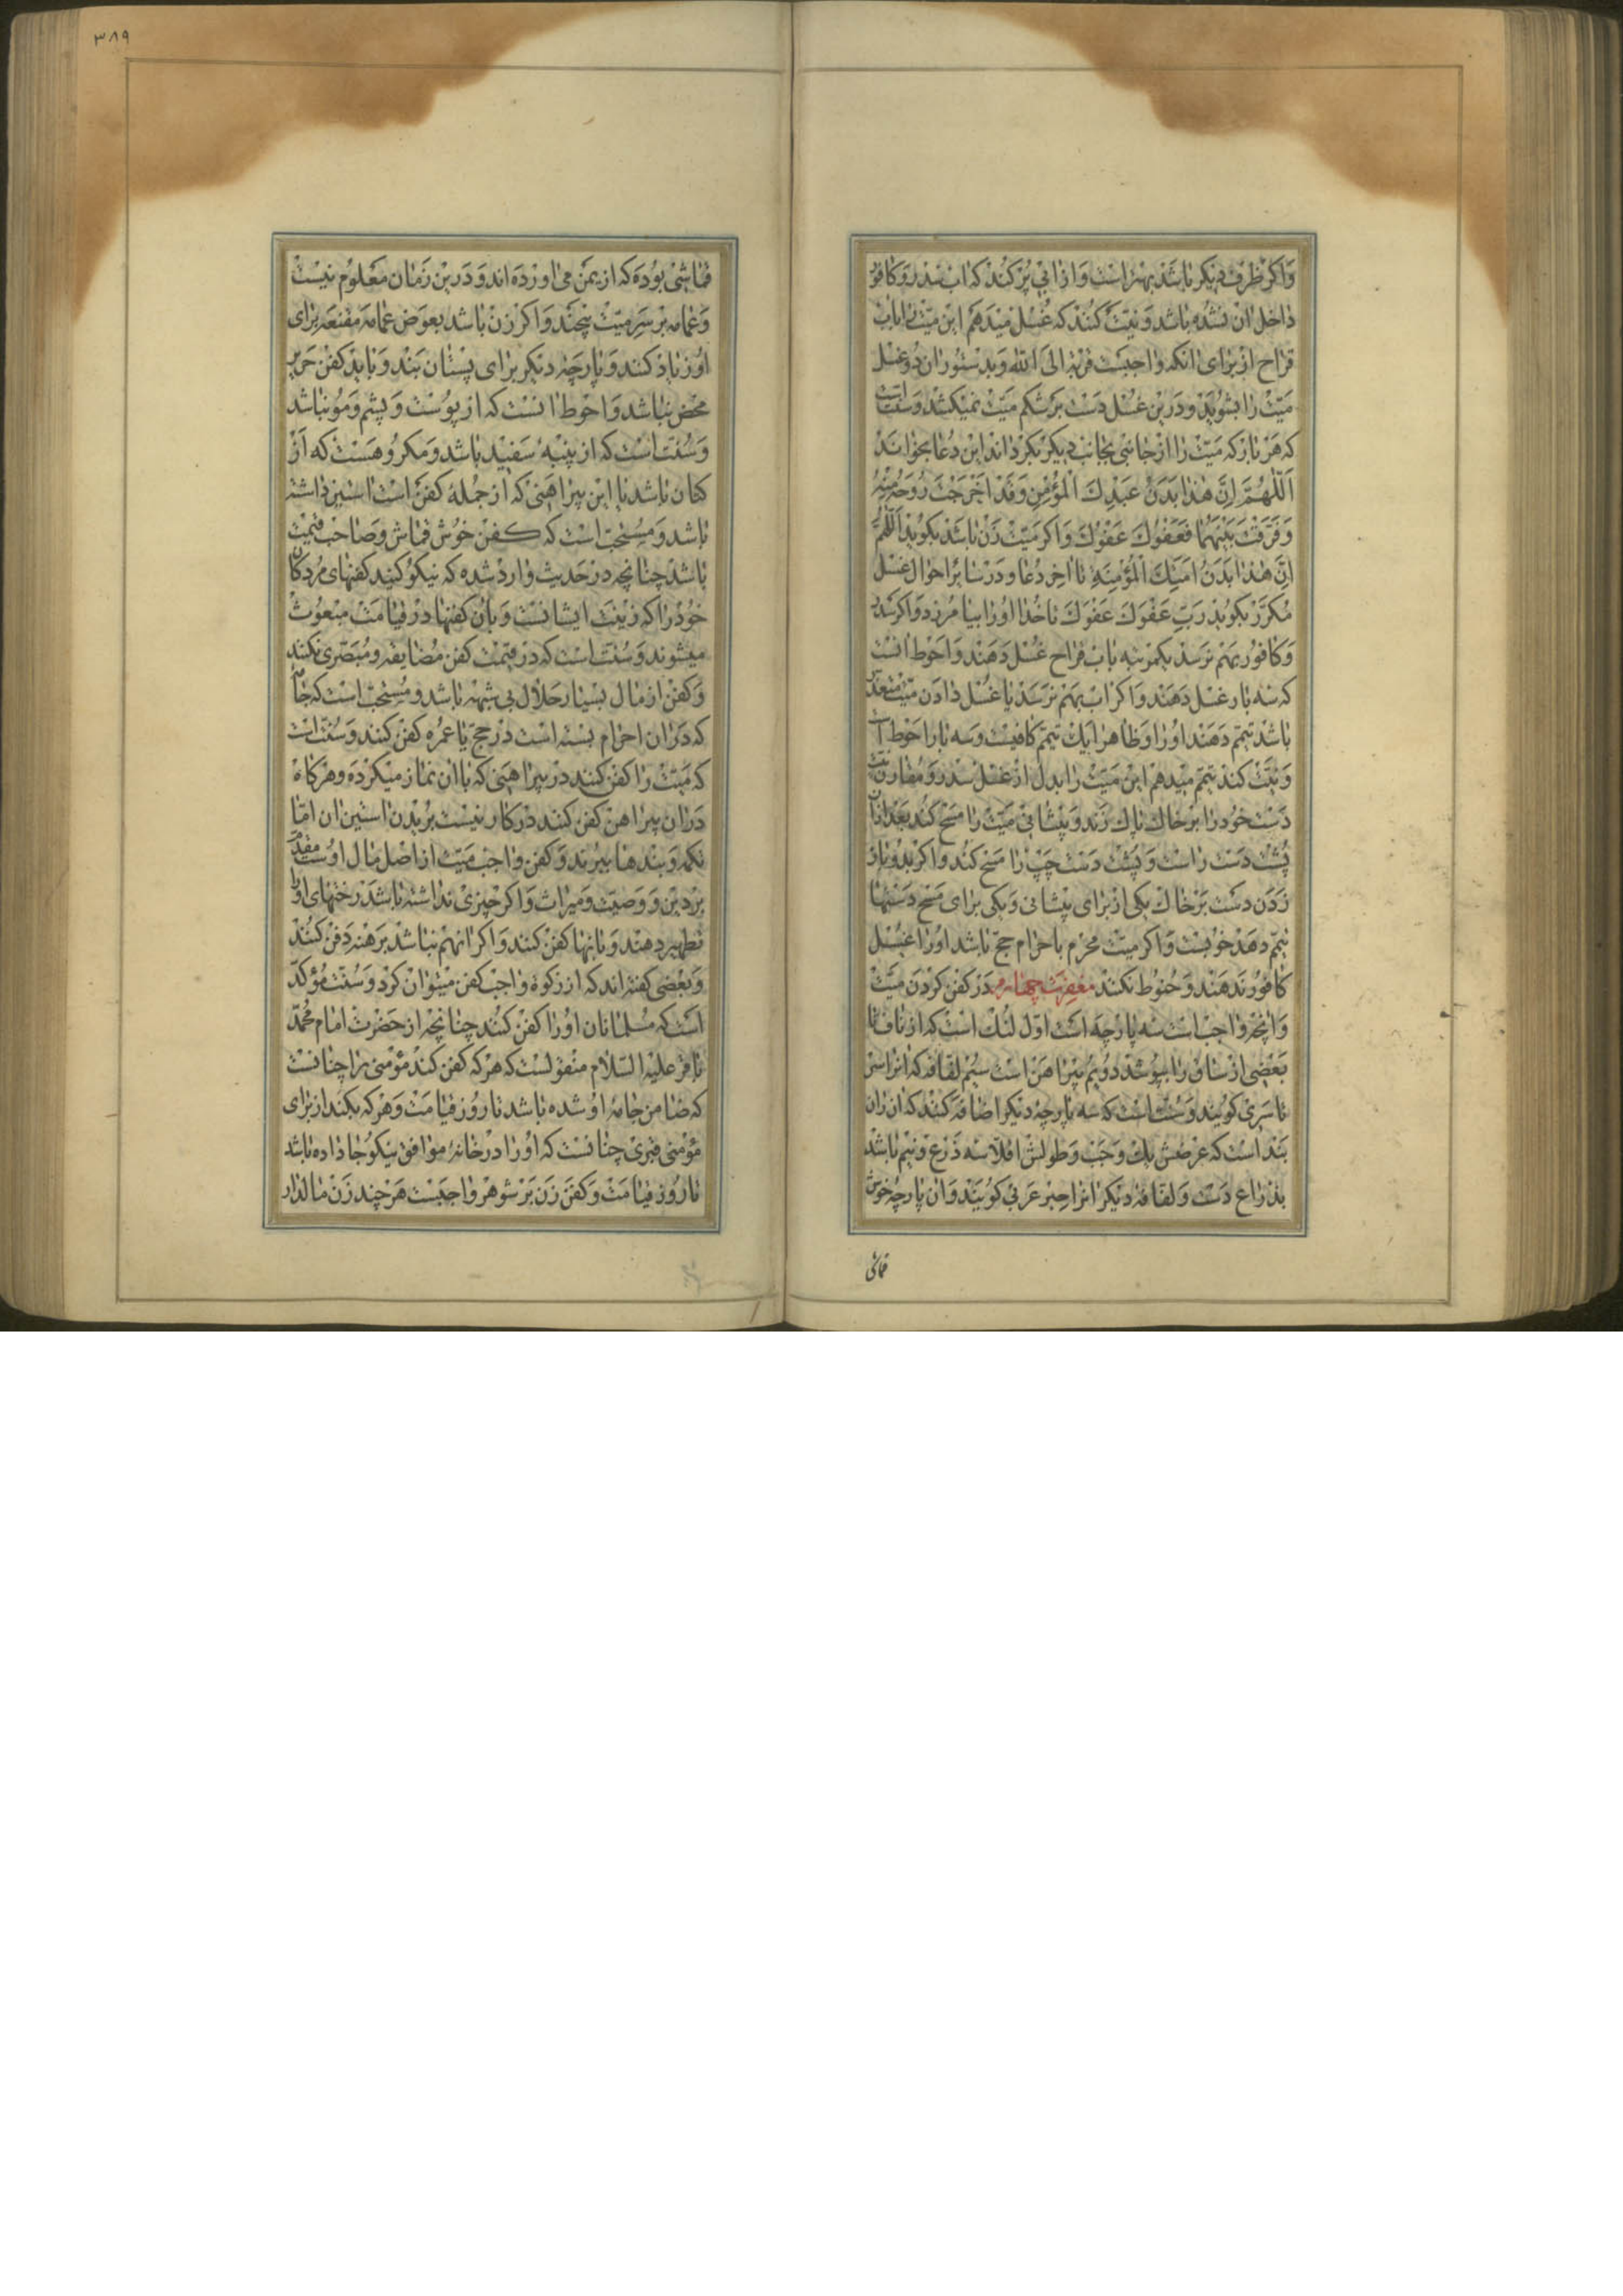 واکر ظرف دیکر باشد بهتر است و از ابی پر کنند که اب سدر و کافور
داخل ان نشده باشد و نیت کنند که غسل میدهم این میت را باب
قراح از برای انکه واجبست قربة الی الله و بدستور ان دو غسل
میت را بشویند و درین غسل دست بر شکم میت نمیکشد و سنت است
که هر بار که میت را از جانبی بجانب دیکر بکرداند این دعا بخواند
اللهم ان هذا بدن عبدك المؤمن وقد اخرجت روحه منه
وفرقت بینهما فعفوك عفوك و اکر میت زن باشد بکوید اللهم
ان هذا بدن امتك المؤمنة تا اخر دعا و در سایر احوال غسل
مکرر بکوید رب عفوك عفوك تا خدا او را بیامرزد و اکر سدر
و کافور بهم نرسد یکمرتبه باب قراح غسل دهند و احوط انست
که سه بار غسل دهند و اکر اب بهم نرسد یا غسل دادن میت متعذر
باشد تیمم دهند او را و ظاهرا یك تیمم کافیست و سه بار احوط است
و نیت کند تیمم میدهم این میت را بدل از غسل سدر و مقارن نیت
دست خود را بر خاك پاك زند و پیشانی میت را مسح کند بعد ازان
پشت دست راست و پشت دست چپ را مسح کند و اکر بدوبار
زدن دست بر خاك یکی از برای پیشانی و یکی برای مسح دستها
تیمم دهد خوبست و اکر میت محرم باحرام حج باشد او را غسل
کافور ندهند و حنوط نکنند مغفرت چهارم در کفن کردن میت
و انچه واجب است سه پارچه است اول لنك است که از ناف تا
بعضی از ساق را بپوشد دویم پیراهن است سیم لفافه که انرا سر
تا سری کویند و سنت است که سه پارچه دیکر اضافه کنند که ان ران
بند است که عرضش یك وجب و طولش اقلا سه ذرع و نیم باشد
بذراع دست و لفافه دیکر انرا حبر عربی کویند و ان پارچه خوش
قماشی
۳۸۹
قماشی بوده که از یمن می اورده اند و درین زمان معلوم نیست
و عمامه بر سر میت پیچند و اکر زن باشد بعوض عمامه مقنعه برای
او زیاد کنند و پارچه دیکر برای پستان بند و باید کفن حریر
محض نباشد و احوط انست که از پوست و پشم و مو نباشد
و سنت است که از پنبه سفید باشد و مکروهست که از
کتان باشد یا این پیراهنی که از جمله کفن است استین داشته
باشد و مستحب است که کفن خوش قماش و صاحب قیمت
باشد چنانچه در حدیث وارد شده که نیکو کنید کفنهای مردکان
خود را که زینت ایشانست و بان کفنها در قیامت مبعوث
میشوند و سنت است که در قیمت کفن مضایقه و مبصری نکنند
و کفن از مال بسیار حلال بی شبهه باشد و مستحب است که جامه
که دران احرام بسته است در حج یا عمره کفن کنند و سنت است
که میت را کفن کنند در پیراهنی که باان نماز میکرده و هرکاه
دران پیراهن کفن کنند در کار نیست بریدن استین ان اما
تکمه و بندها ببرند و کفن واجب میت از اصل مال اوست مقدم
بر دین و وصیت و میراث و اکر چیزی نداشته باشد رختهای او را
تطهیر دهند و بانها کفن کنند و اکر انهم نباشد برهنه دفن کنند
و بعضی کفته اند که از زکوة واجب کفن میتوان کرد و سنت مؤکد
است که مسلمانان او را کفن کنند چنانچه از حضرت امام محمد
باقر علیه السلام منقولست که هر که کفن کند مؤمنی را چنانست
که ضامن جامه او شده باشد تا روز قیامت و هر که بکند از برای
مؤمنی قبری چنانست که او را در خانه موافق نیکو جا داده باشد
تا روز قیامت و کفن زن بر شوهر واجبست هر چند زن مالدار